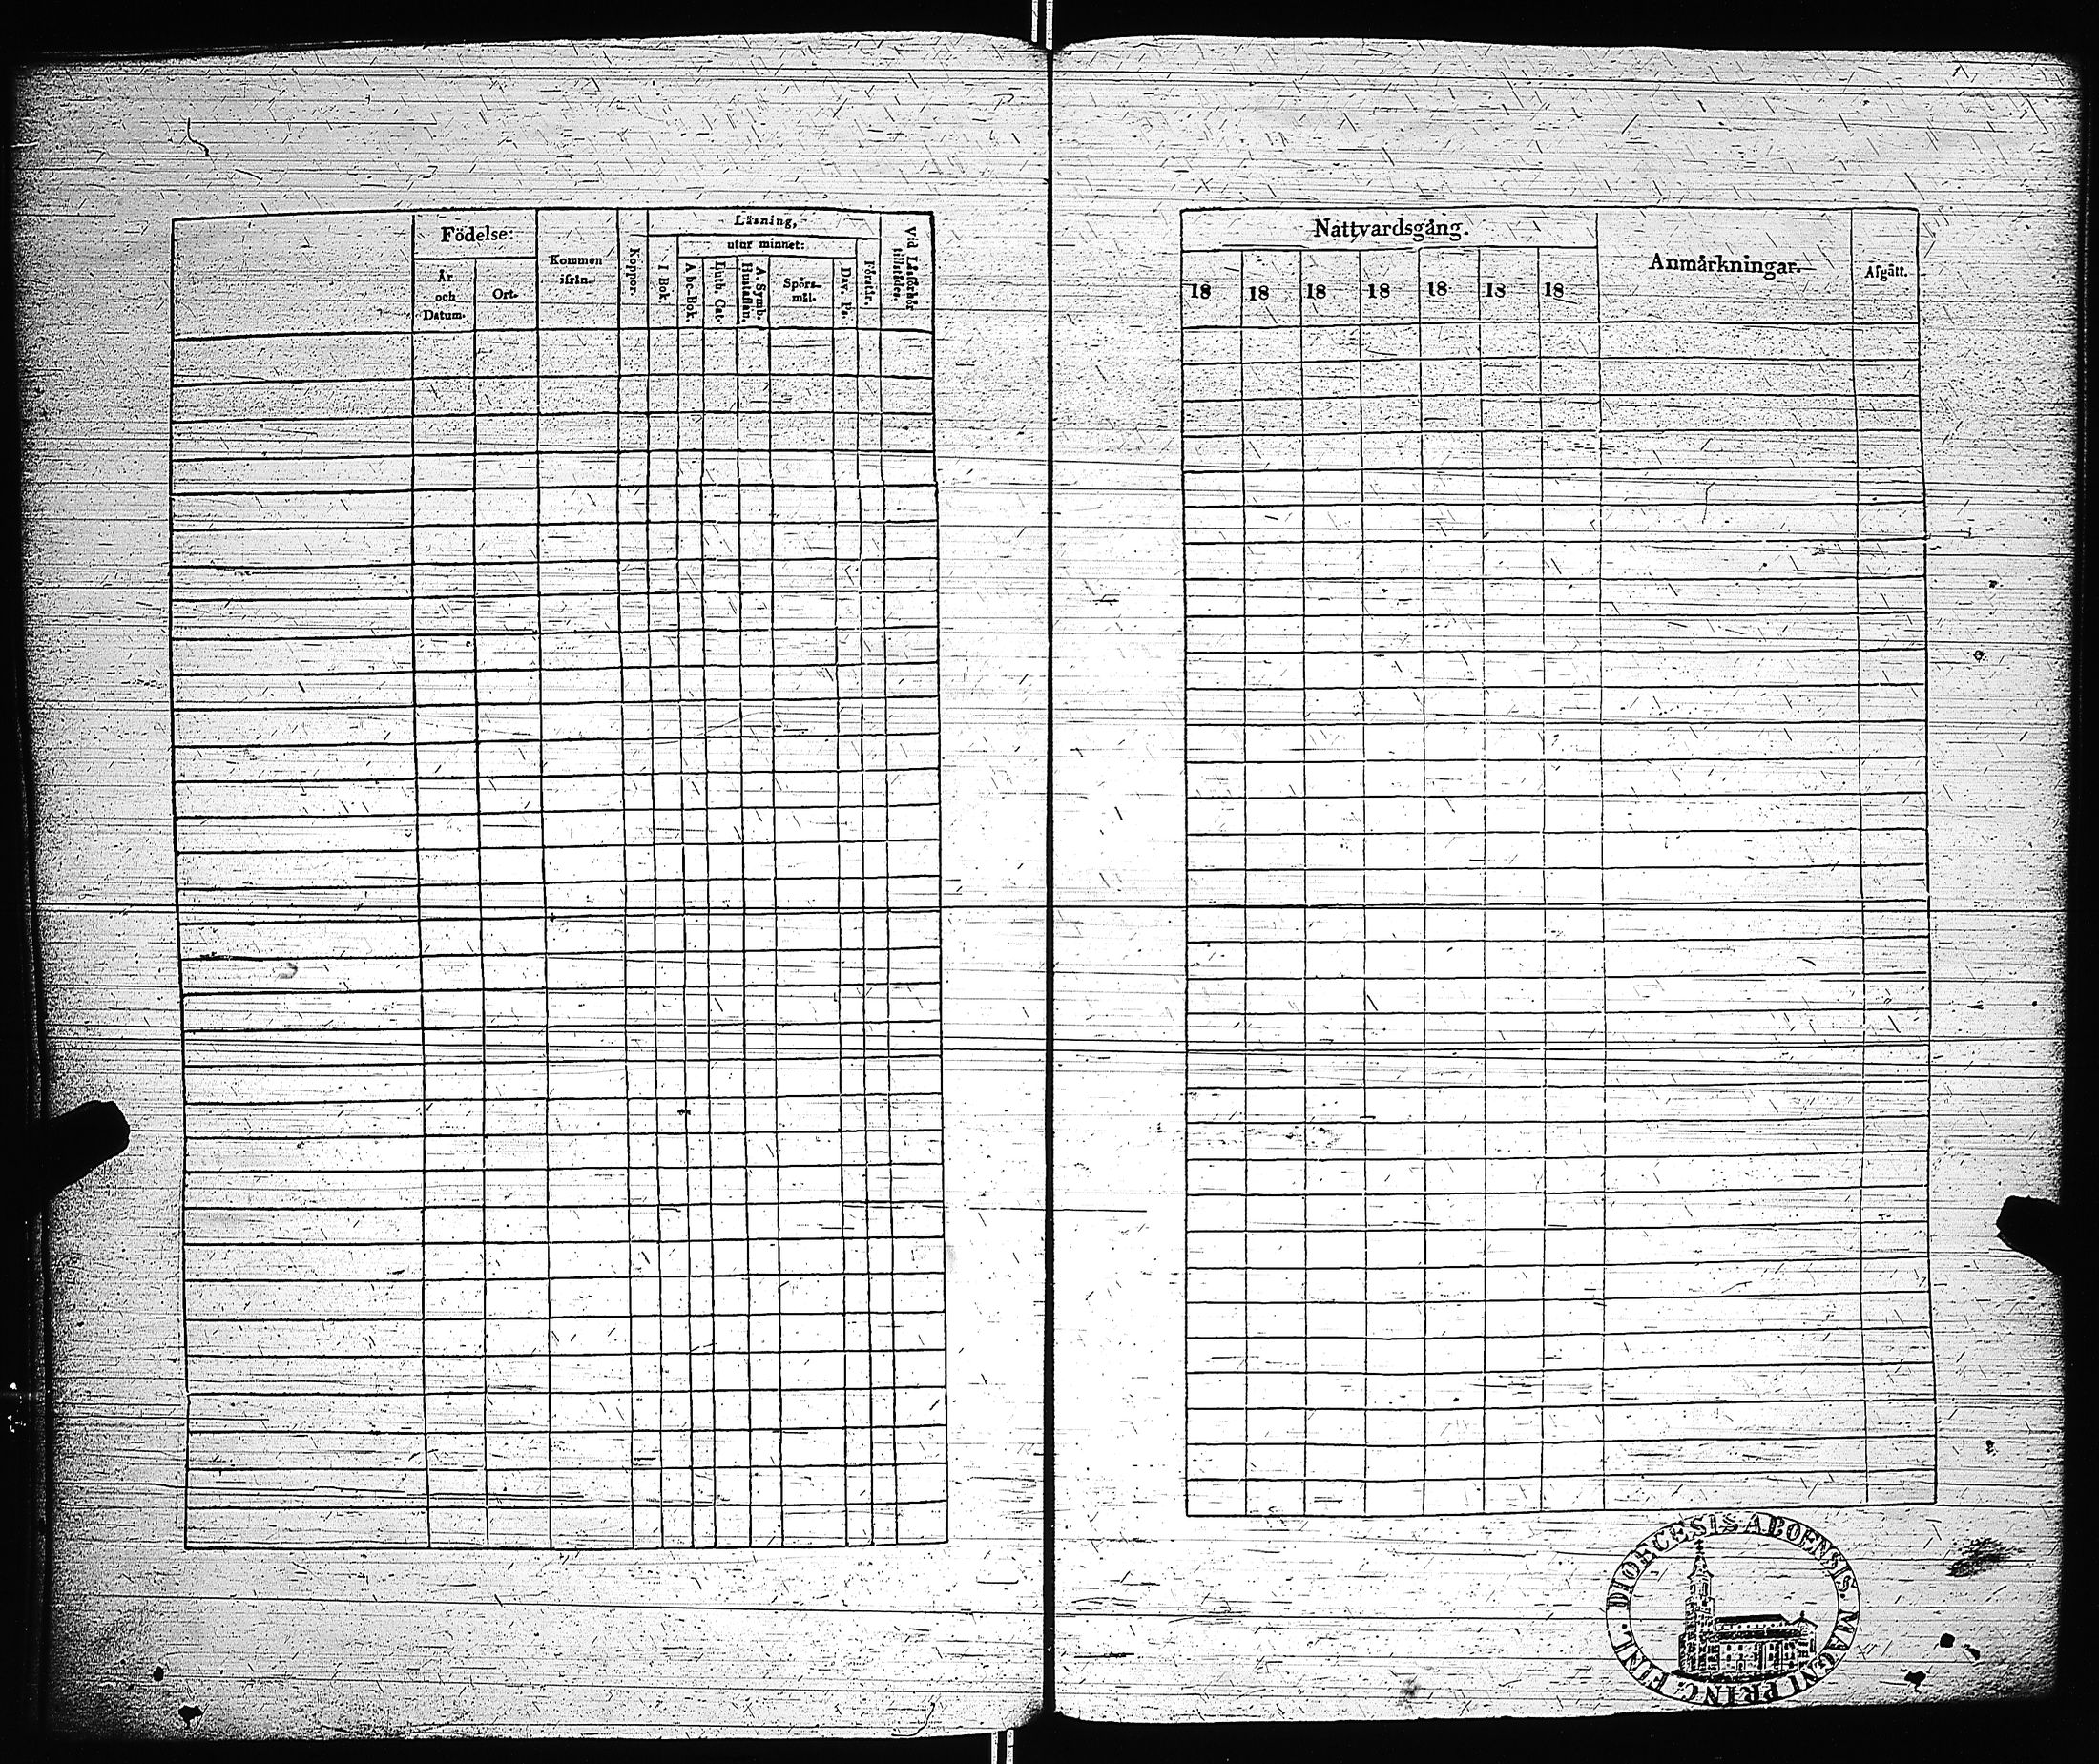 Födelse:
År
och
Datum.
Ort.
Kommen
ifrån.
Koppor.
Läsning,
I Bok.
utur minnet:
Abc-Bok.
Luth. Cat.
A. Symb.
Hustaflan.
Spörs-
mål.
Dav. Ps.
Förstår.
Vid Läsförhör
tillstädes.
Nattvardsgång.
18 18 18 18 18 18 18
Anmårkningar.
Afgått.
DIOECESIS ABOENSIS. MAGNI PRINC. FINL.